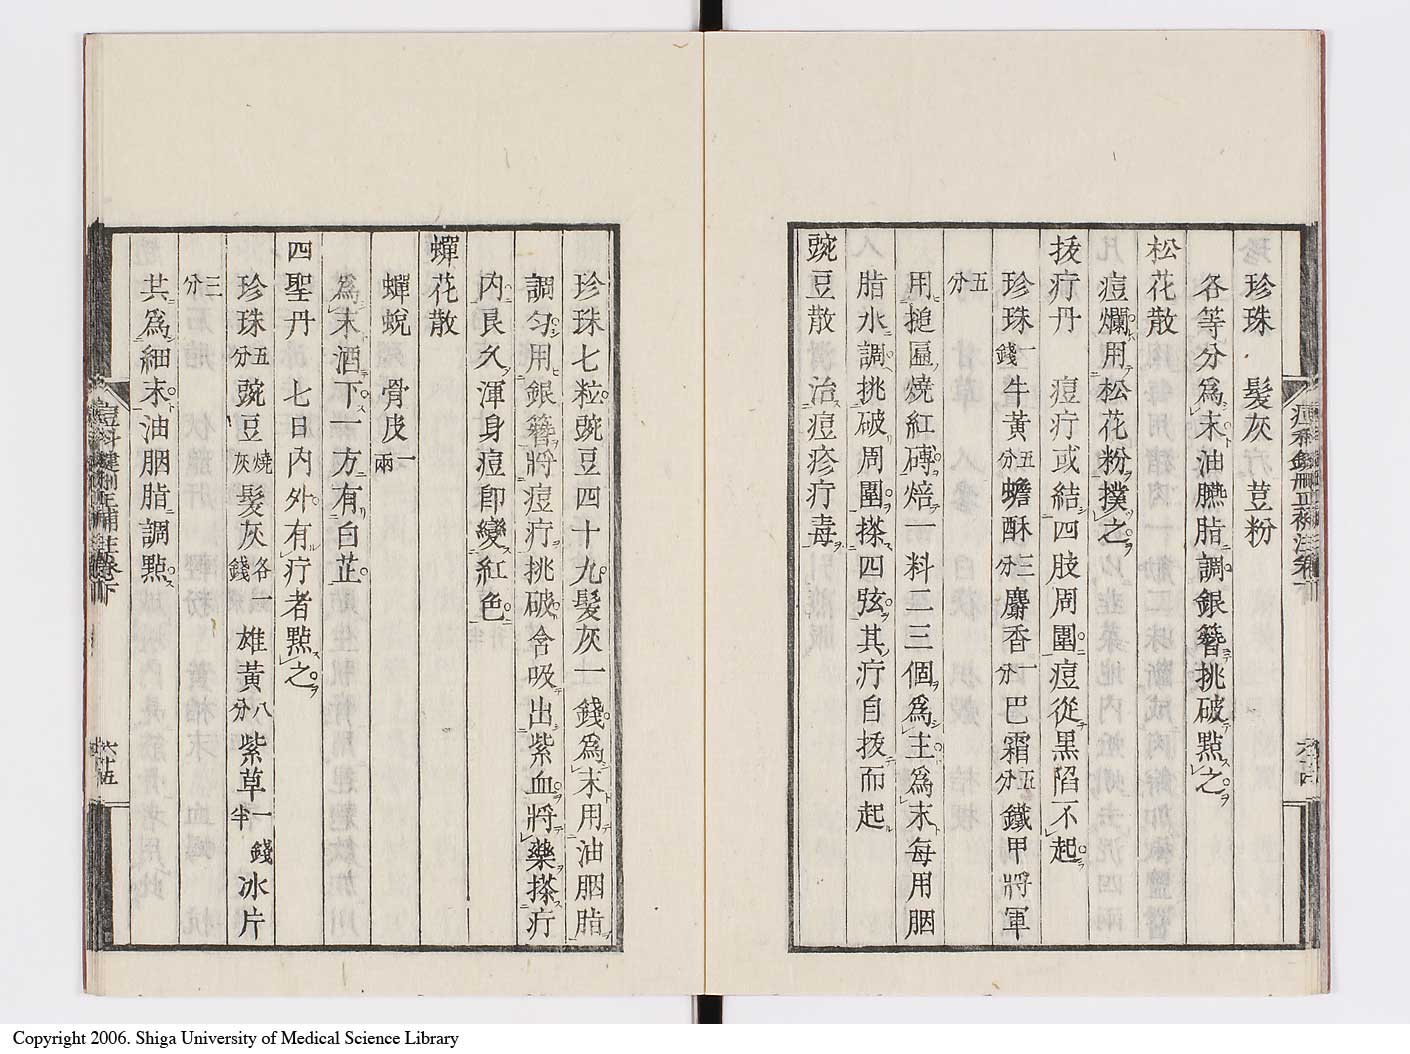 珍珠　髮灰荳粉
各等分爲末油臙脂調銀簪挑破㸃之
松花散
痘爛用松花粉撲之
拔疔丹　痘疔或結四肢周圍痘從黒陷不起
珍珠一錢牛黃五分蟾酥三分麝香一分巴霜五分鐵甲將軍
五分
用搥匾燒紅磚焙一料二三個爲主爲末每用胭
脂水調挑破周圍搽四弦其疔自拔而起
豌豆散治痘疹疔毒
痘科鍵刪正補注卷下
六十四
珍珠七粒豌豆四十九髮灰一錢爲末用油胭脂
調匀用銀簪將痘疔挑破含吸出紫血將藥搽疔
内良久渾身痘卽變紅色
蟬花散
蟬蛻　骨皮一兩
爲末酒下一方有白芷
四聖丹　七日内外有疔者㸃之
珍珠五分豌豆燒灰髮灰各一錢雄黃八分紫草一錢半冰片
三分
其爲細末油胭脂調㸃
痘科鍵刪正補註卷下
六十五
Copyright 2006. Shiga University of Medical Science Library